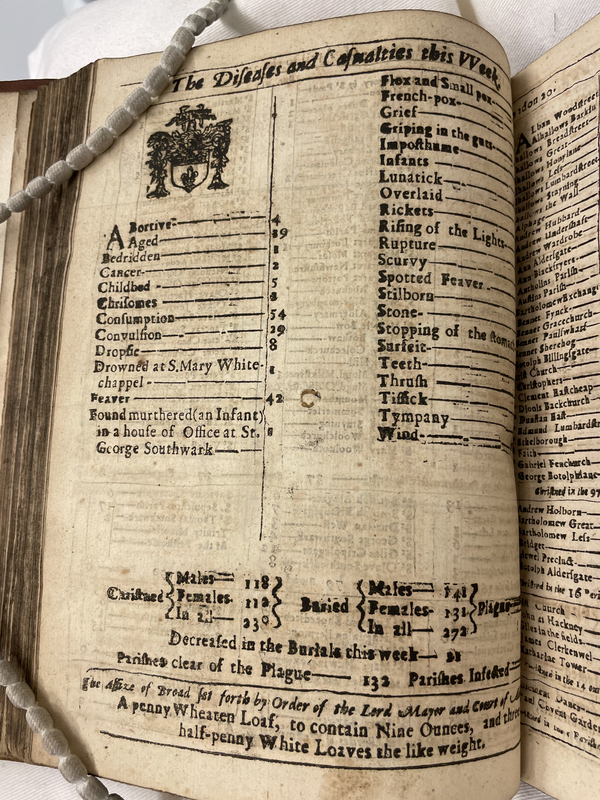 The Diseases and Casualties this Week.
Abortive 4
Aged 19
Bedridden 1
Cancer 2
Childbed 5
Chrisomes
Consumption 54
Convulsion 29
Dropsie 8
Drowned at S. Mary White-
chappel
Feaver 42
Found murthered (an Infant)
in a house of Office at St.
George Southwark
Flox and Small pox
French-pox
Grief
Griping in the guts
Imposthume
Infants
Lunatick
Overlaid
Rickets
Rising of the Lights
Rupture
Scurvy
Spotted Feaver
Stilborn
Stone
Stopping of the stomach
Surfeit
Teeth
Thrush
Tissick
Tympany
Wind
Christned
Males 118
Females 112
In all 230
Buried
Males 141
Females 131
In all 272
Plague
Decreased in the Burials this week
Parishes clear of the Plague 132 Parishes Infected
The Assize of Bread set forth by Order of the Lord Mayor and Court of
A penny Wheaten Loaf, to contain Nine Ounces, and three
half-penny White Loaves the like weight.
Alban Woodstreet
Alhallows Barkin
Alhallows Breadstreet
Great
Honylane
Less
Lumbardstreet
Stayning
the Wall
Alphage
Andrew Hubbard
Andrew Undershaft
Andrew Wardrobe
Ann Aldersgate
Ann Blackfryers
Antholins Parish
Austins Parish
Bartholomew Exchange
Bennet Fynck
Bennet Gracechurch
Bennet Paulswharf
Bennet Sherehog
Botolph Billingsgate
Church
Christophers
Clement Eastcheap
Dionis Backchurch
Dunstan East
Edmund Lumbardstr
Ethelborough
Faith
Gabriel Fenchurch
George Botolphlane
Christned in the 97
Andrew Holborn
Bartholomew Great
Bartholomew Less
Bridget
Bridewel Precinct
Botolph Aldersgate
Church
at Hackney
in the fields
James Clerkenwel
Katharine Tower
Covent Garden